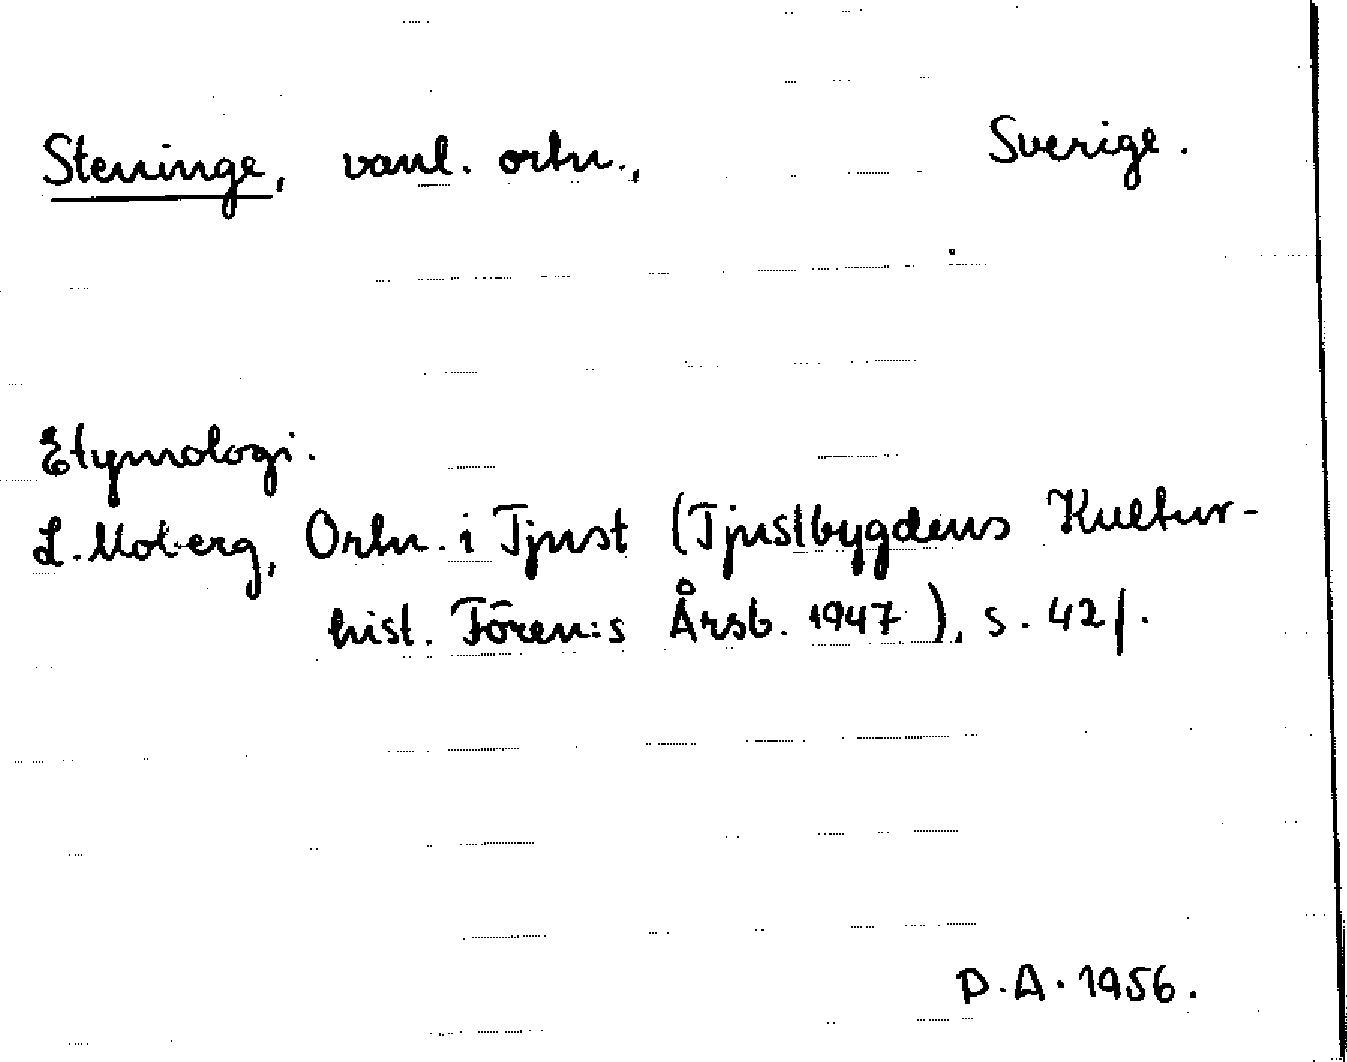 Steninge, vanl. ortn., Sverige.
Etymologi.
L. Moberg, Ortn. i Tjust (Tjustbygdens Kultur-
hist. Fören:s Årsb. 1947), s. 42f.
D.A. 1956.